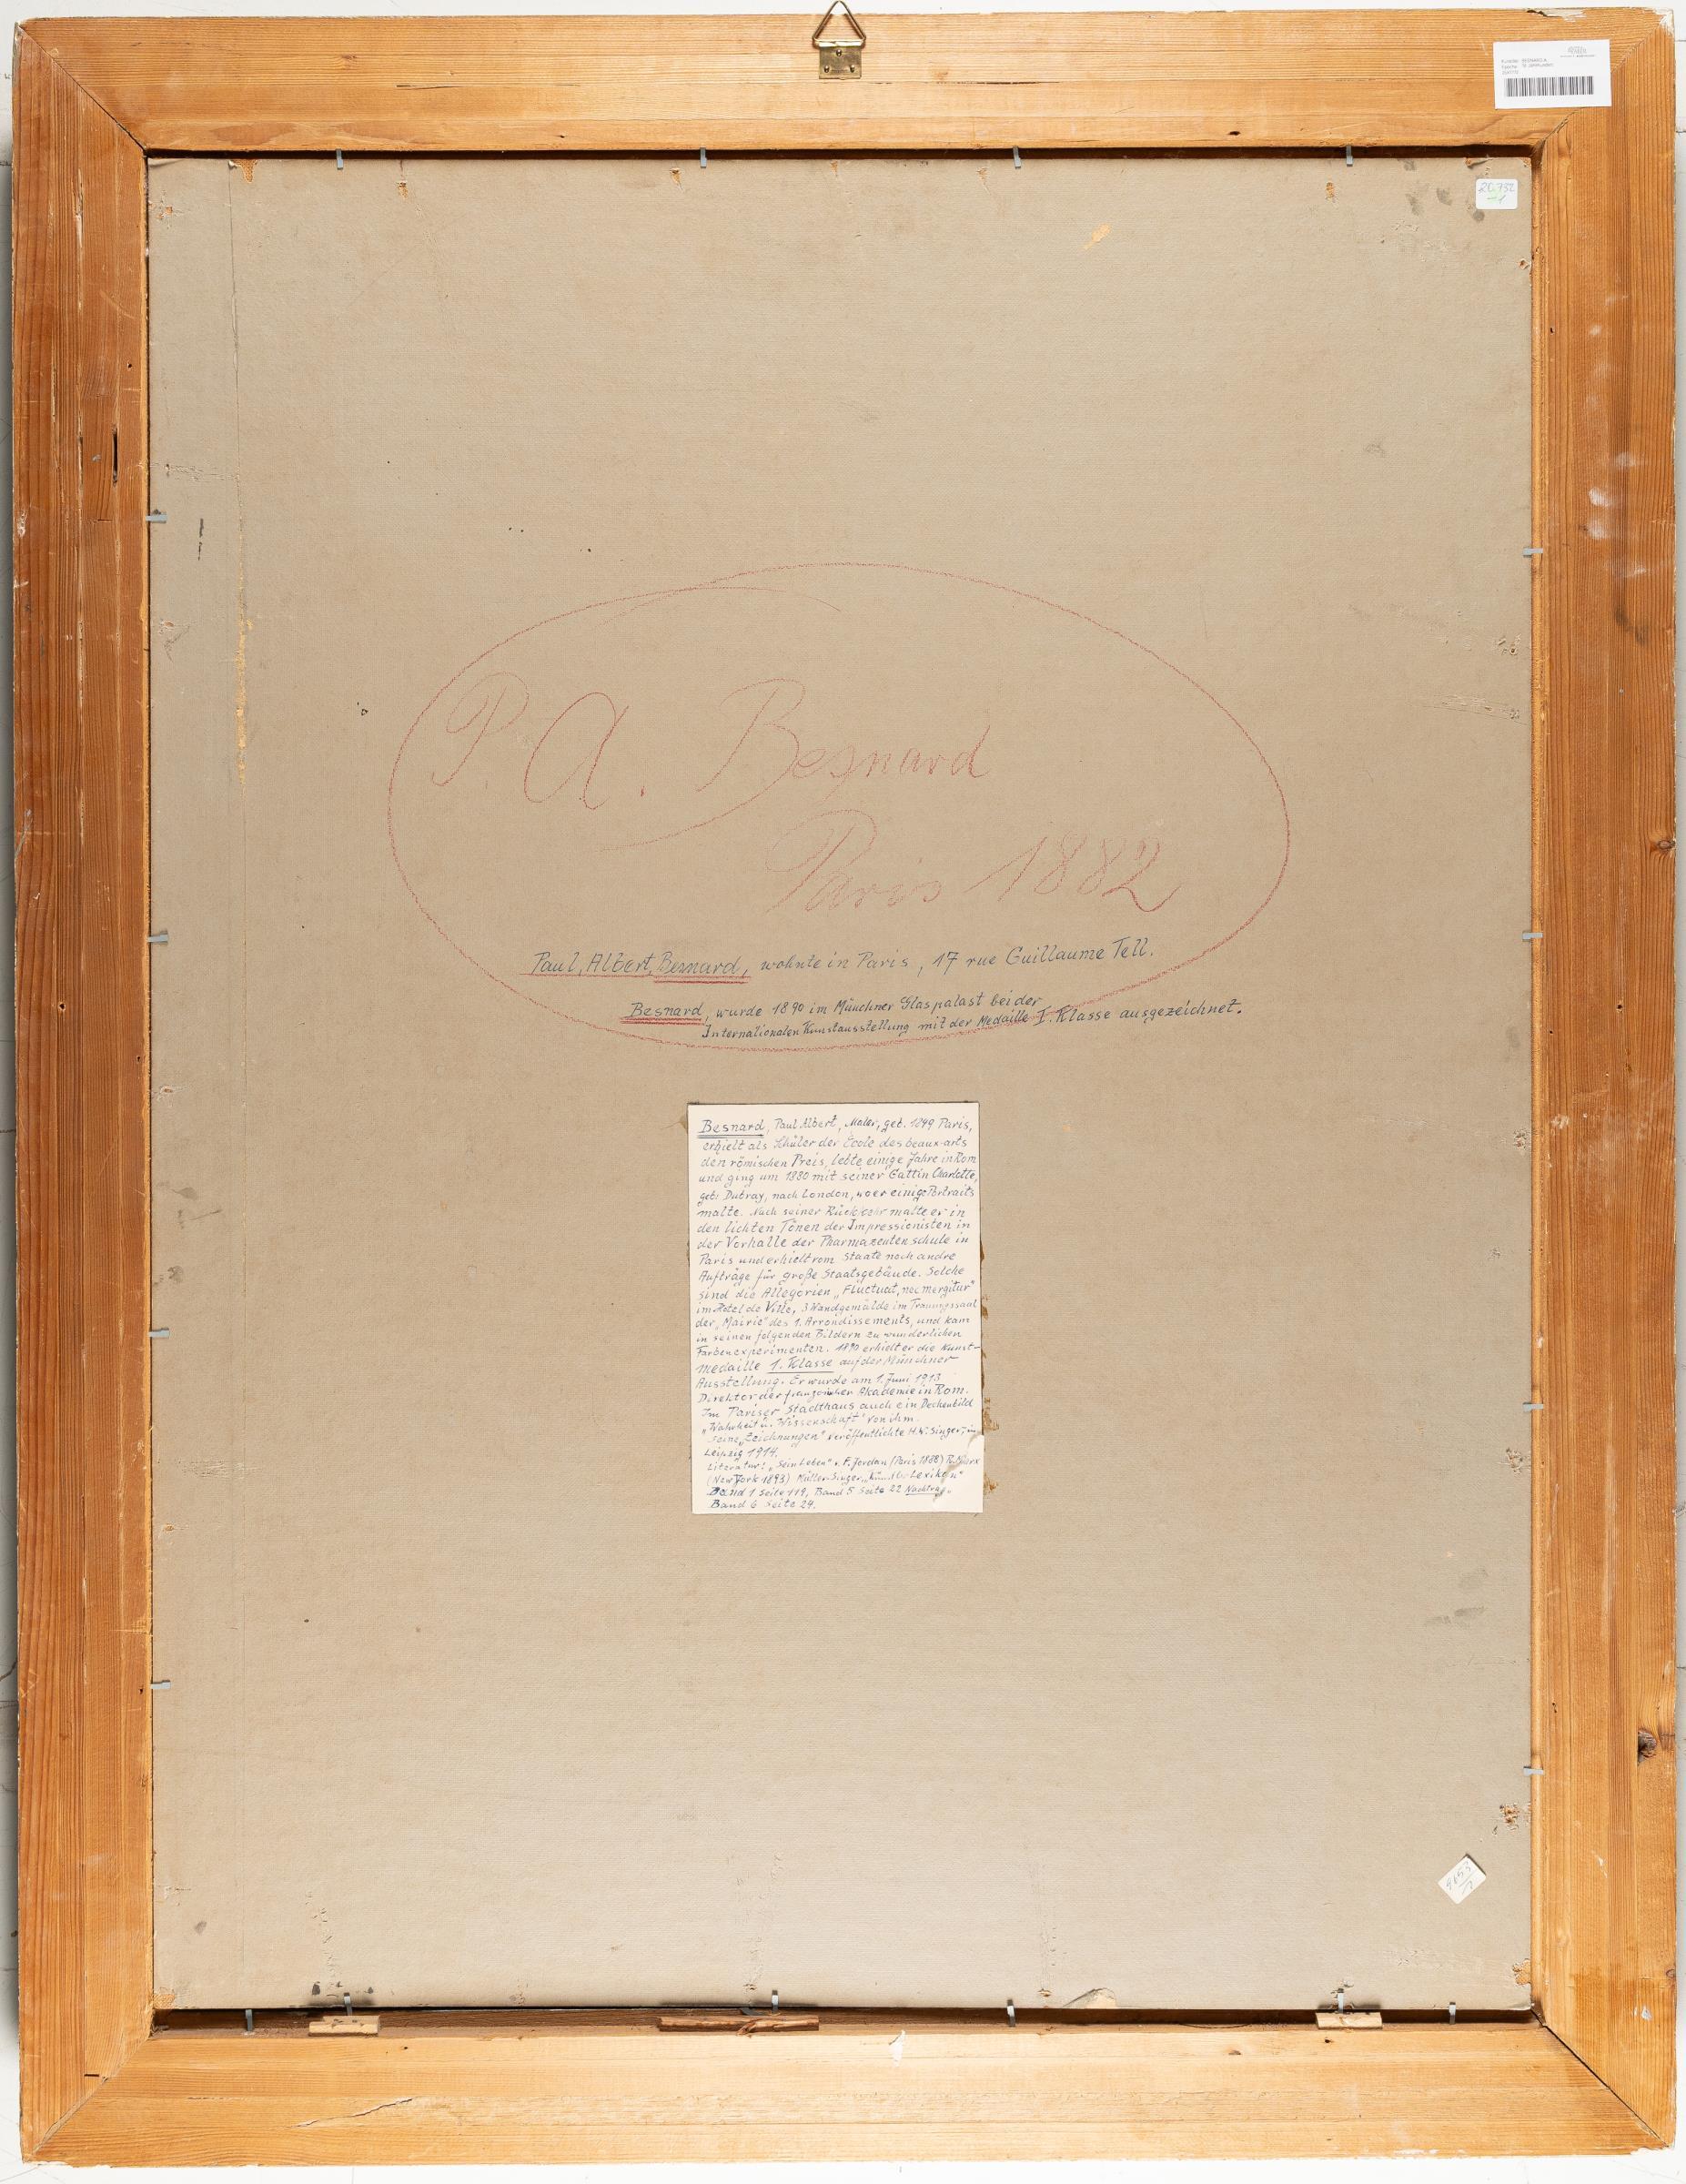 BESNARD, A.
20.732
P. A. Besnard
Paris 1882
Paul, Albert, Besnard, wohnte in Paris, 17 rue Guillaume Tell.
Besnard, wurde 1890 im Münchner Glaspalast bei der
Internationalen Kunstausstellung mit der Medaille I. Klasse ausgezeichnet.
Besnard, Paul Albert, Maler, geb. 1849 Paris,
erhielt als Schüler der École des beaux-arts
den römischen Preis, lebte einige Jahre in Rom
und ging um 1880 mit seiner Gattin Charlotte,
geb. Dubray, nach London, wo er einige Portraits
malte. Nach seiner Rückkehr malte er in
den lichten Tönen der Impressionisten in
der Vorhalle der Pharmazeutenschule in
Paris und erhielt vom Staate noch andre
Aufträge für große Staatsgebäude. Solche
sind die Allegorien „Fluctuat, nec mergitur"
im Hôtel de Ville, 3 Wandgemälde im Trauungssaal
der „Mairie" des 1. Arrondissements, und kam
in seinen folgenden Bildern zu wunderlichen
Farbenexperimenten. 1890 erhielt er die Kunst-
medaille 1. Klasse auf der Münchner
Ausstellung. Er wurde am 1. Juni 1913
Direktor der französischen Akademie in Rom.
Im Pariser Stadthaus auch ein Deckenbild
„Wahrheit u. Wissenschaft" von ihm.
Seine „Zeichnungen" veröffentlichte H.W. Singer, in
Leipzig 1914.
Literatur: „Sein Leben" v. F. Jordan (Paris 1888) R. Marx
(New York 1893) Müller-Singer „Künstler Lexikon"
Band 1 Seite 119, Band 5 Seite 22 Nachtrag
Band 6 Seite 24.